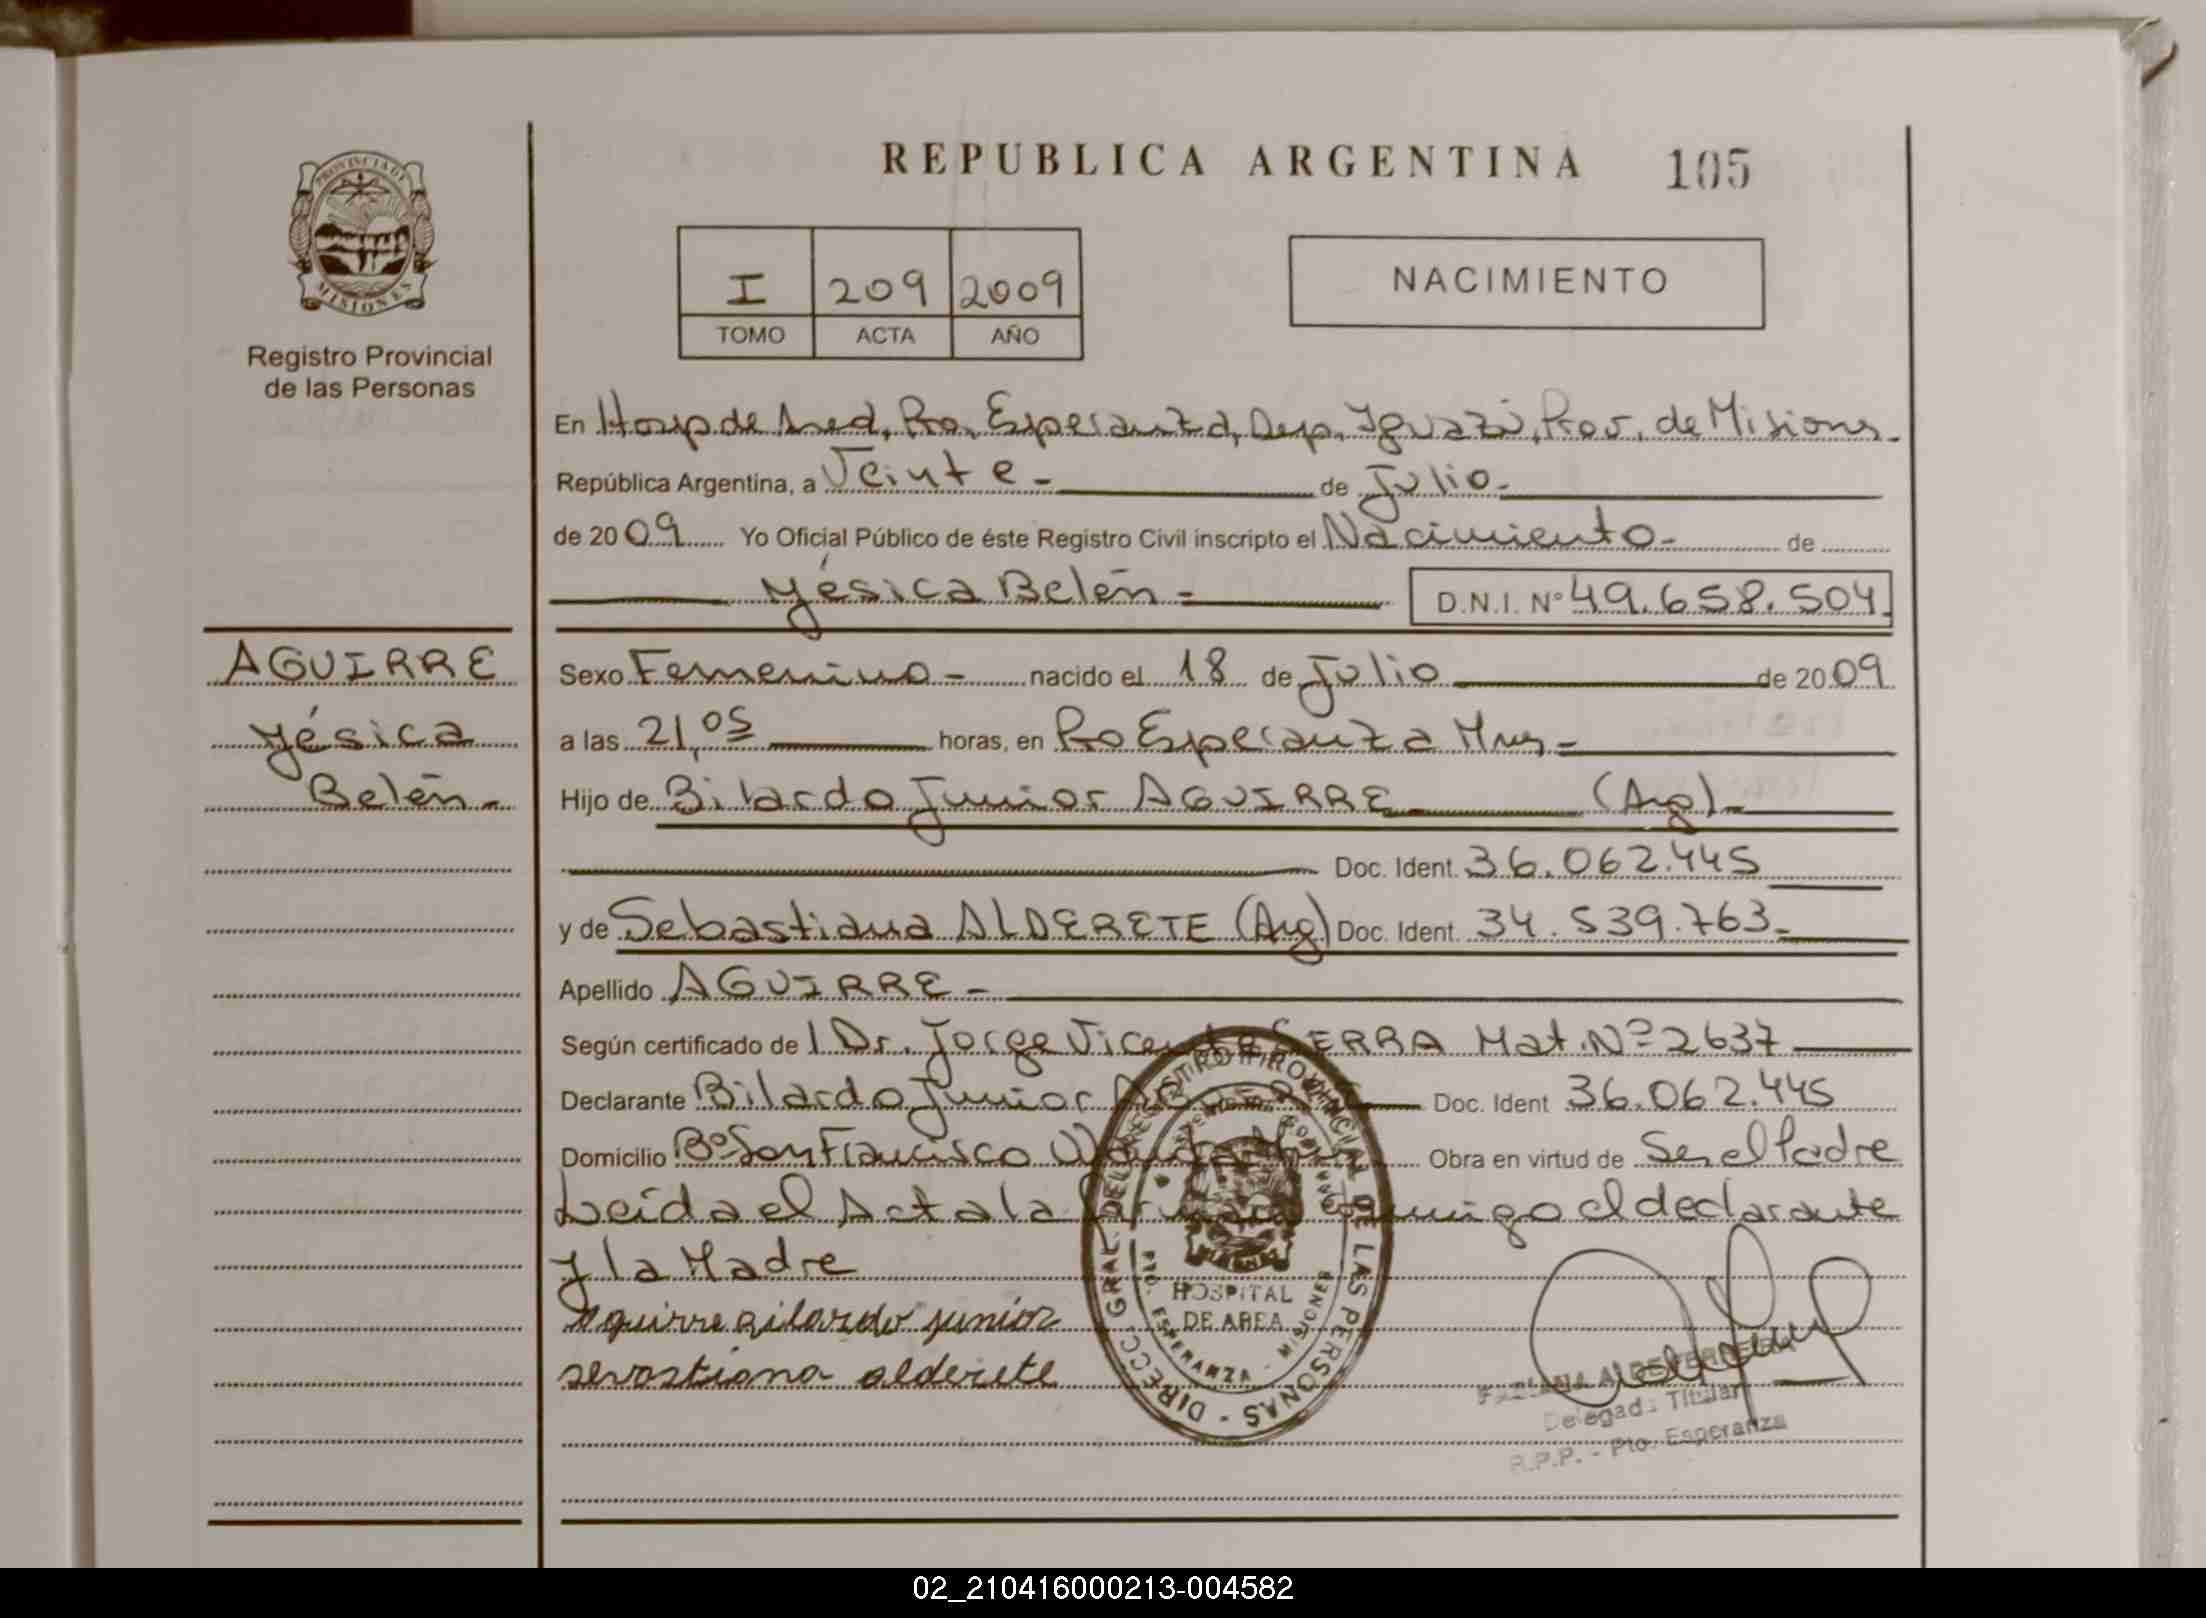 REPUBLICA ARGENTINA 105
PROVINCIA DE MISIONES
Registro Provincial
de las Personas
I 209 2009
TOMO ACTA AÑO
NACIMIENTO
En Hosp de Ared, Pto, Esperanza, Dep. Iguazú, Prov. de Misiones-
República Argentina, a Veinte - de Julio-
de 2009 Yo Oficial Público de éste Registro Civil inscripto el Nacimiento- de
Yésica Belén = D.N.I. Nº 49.658.504.
AGUIRRE
Yésica
Belén-
Sexo Femenino - nacido el 18 de Julio de 2009
a las 21,05 horas, en Pto Esperanza Mnes=
Hijo de Bilardo Junior AGUIRRE (Arg)-
Doc. Ident. 36.062.445
y de Sebastiana ALDERETE (Arg) Doc. Ident. 34.539.763-
Apellido AGUIRRE -
Según certificado de l Dr. Jorge Vicente SERRA Mat. Nº 2637
Declarante Bilardo Junior AGUIRRE Doc. Ident 36.062.445
Domicilio Bº San Francisco Wanda Obra en virtud de Ser el Padre
Leída el Acta la firman conmigo el declarante
y la Madre
aguirre bilardo junior
sevastiana alderete
DIRECC. GRAL. DEL REGISTRO PROVINCIAL DE LAS PERSONAS
HOSPITAL
DE AREA
PTO. ESPERANZA - MISIONES
Delegada Titular
R.P.P. - Pto. Esperanza
02_210416000213-004582